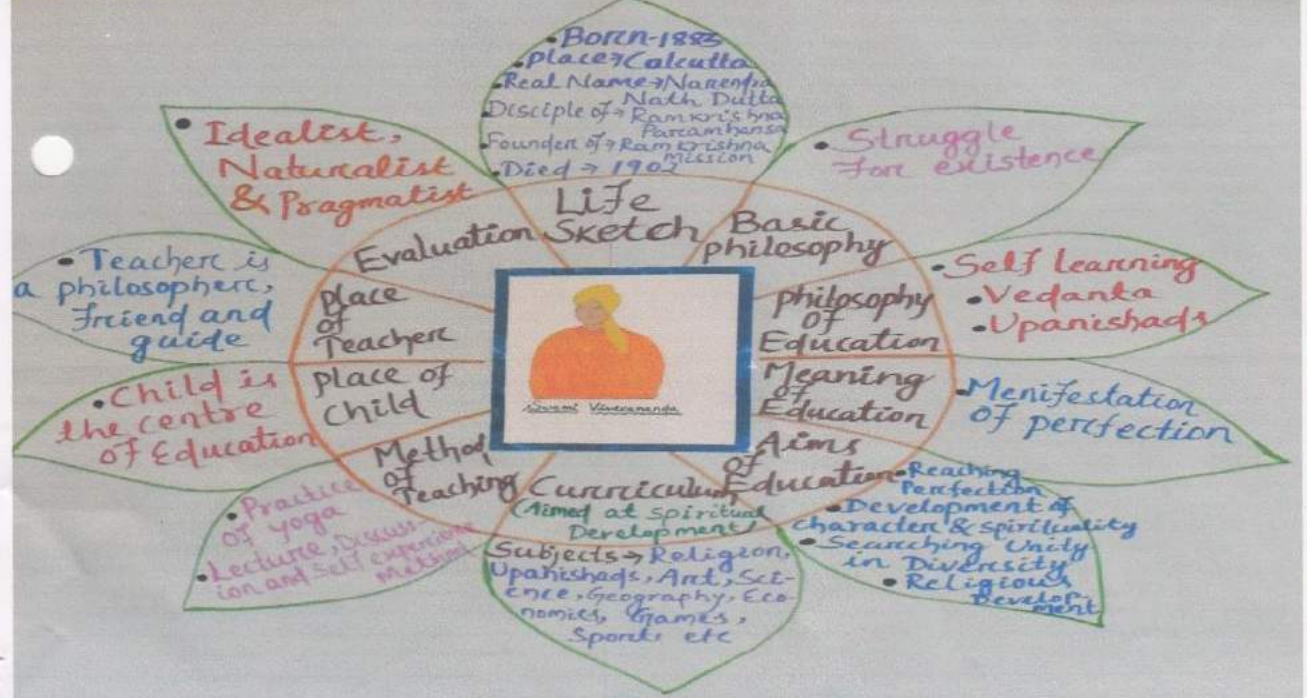 • Born-1883
• place→Calcutta
• Real Name→Narendra
Nath Dutta
• Disciple of→Ramkrishna
Paramhansa
• Founder of→Ramkrishna
mission
• Died → 1902
Life
Sketch
Basic
philosophy
• Struggle
For existence
philosophy
of
Education
• Self learning
• Vedanta
• Upanishads
Meaning
of
Education
• Menifestation
of perfection
Aims
of
Education
• Reaching
Perfection
• Development of
character & spirituality
• Searching Unity
in Diversity
• Religious
Develop-
ment
Curriculum
(Aimed at spiritual
Development)
Subjects → Religion,
Upanishads, Art, Sci-
ence, Geography, Eco-
nomics, Games,
Sports etc
Method
of
Teaching
• Practice
of yoga
• Lecture, Discuss-
ion and self experience
Method
place of
child
• Child is
the centre
of Education
place
of
Teacher
• Teacher is
a philosopher,
Friend and
guide
Evaluation
• Idealist,
Naturalist
& Pragmatist
Swami Vivekananda